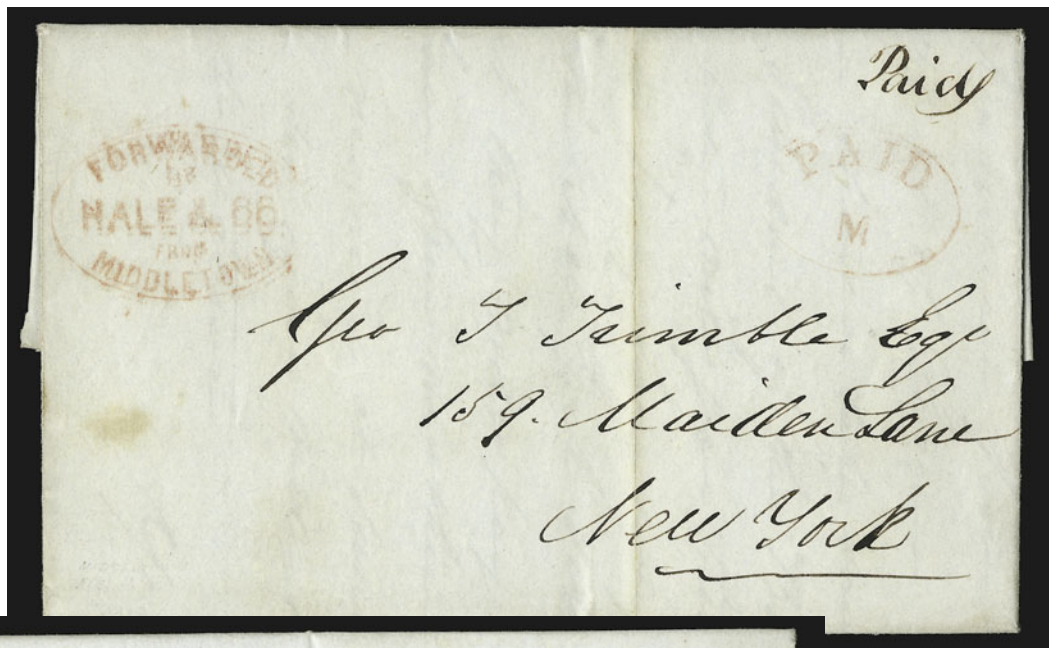 Paid
FORWARDED
BY
HALE & CO.
FROM
MIDDLETOWN
PAID
M
Geo T Trimble Esqr
159. Maiden Lane
New York